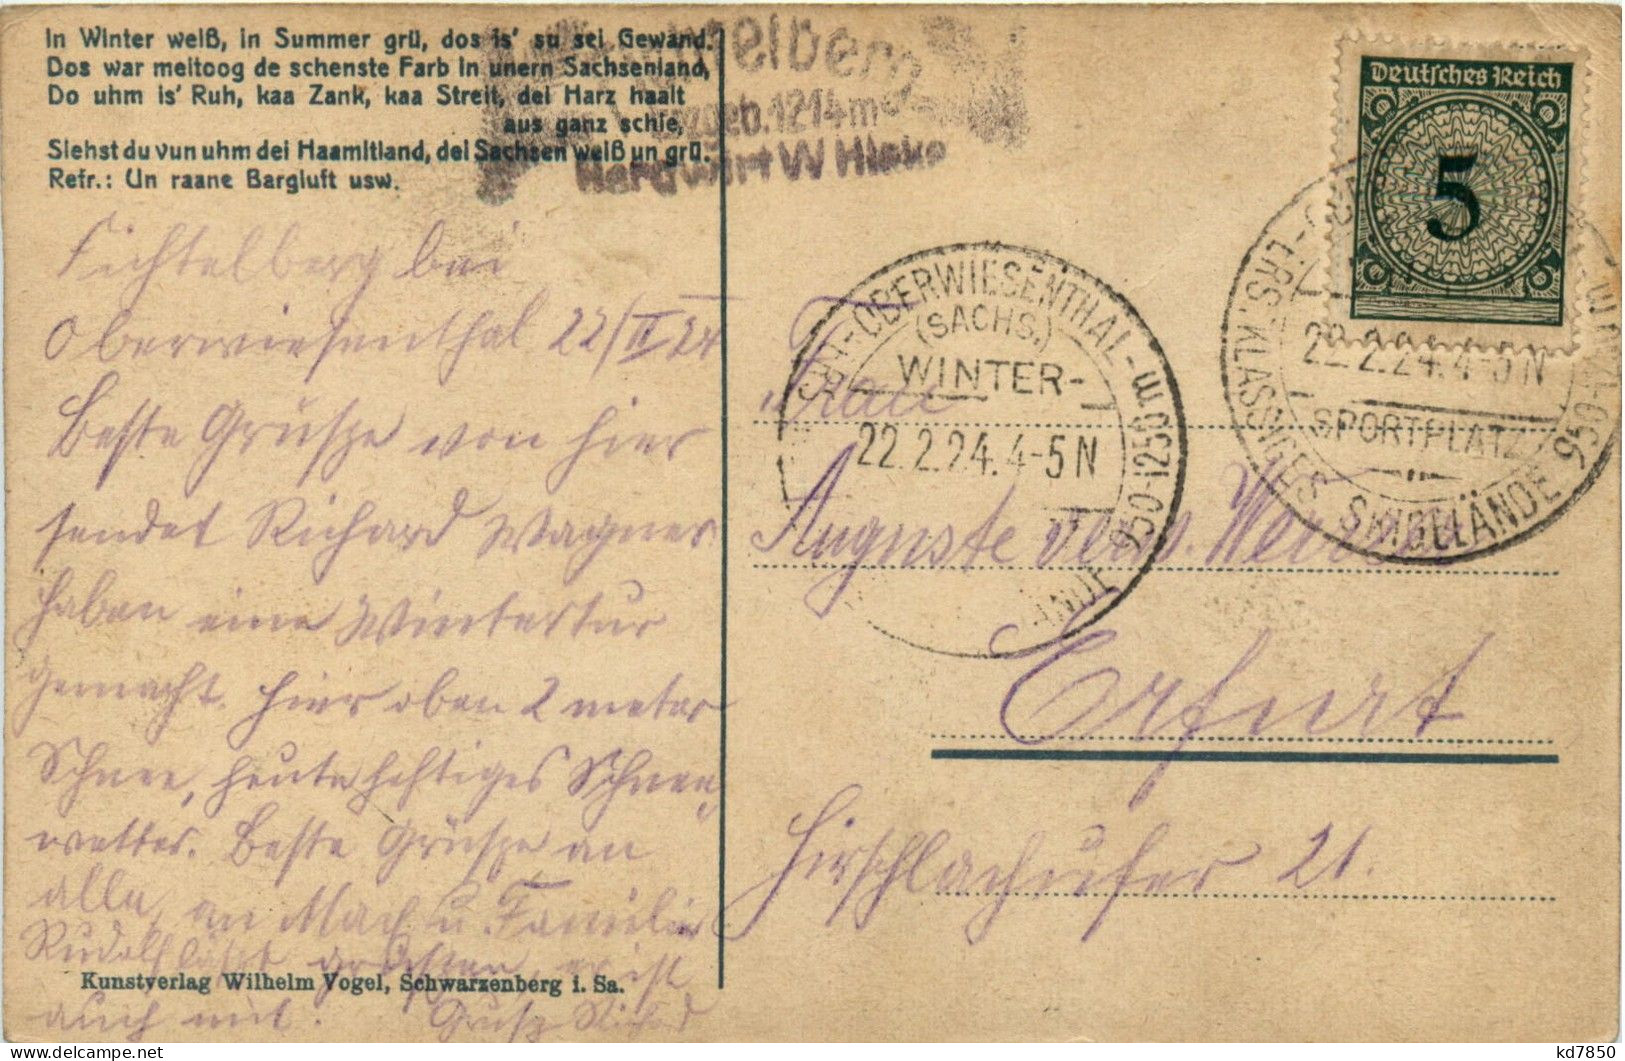 In Winter weiß, in Summer grü, dos is' su sei Gewand.
Dos war meitoog de schenste Farb in unern Sachsenland,
Do uhm is' Ruh, kaa Zank, kaa Streit, dei Harz haalt
aus ganz schie,
Siehst du vun uhm dei Haamitland, dei Sachsen weiß un grü.
Refr.: Un raane Bargluft usw.
Fichtelberg bei
Oberwiesenthal 22/II 24
Beste Grüsze von hier
sendet Richard Wagner
haben eine Wintertur
gemacht. Hier oben 2 meter
Schnee, heute heftiges Schnee-
wetter. Beste Grüsze an
alle, an Mach u. Familie
Rudolf läszt grüszen, er ist
auch mit. Grusz Richard
Kunstverlag Wilhelm Vogel, Schwarzenberg i. Sa.
telberg
geb. 1214 m
W Hieke
Deutsches Reich
5
OBERWIESENTHAL - u. 950-1250
(SACHS.)
WINTER-
22.2.24. 4-5 N
22.2.24. 4-5 N
SPORTPLATZ
ERSTKLASSIGES SKIGELÄNDE 950-
Frau
Auguste verw.
Erfurt
Hirschlachufer 21.
kd7850